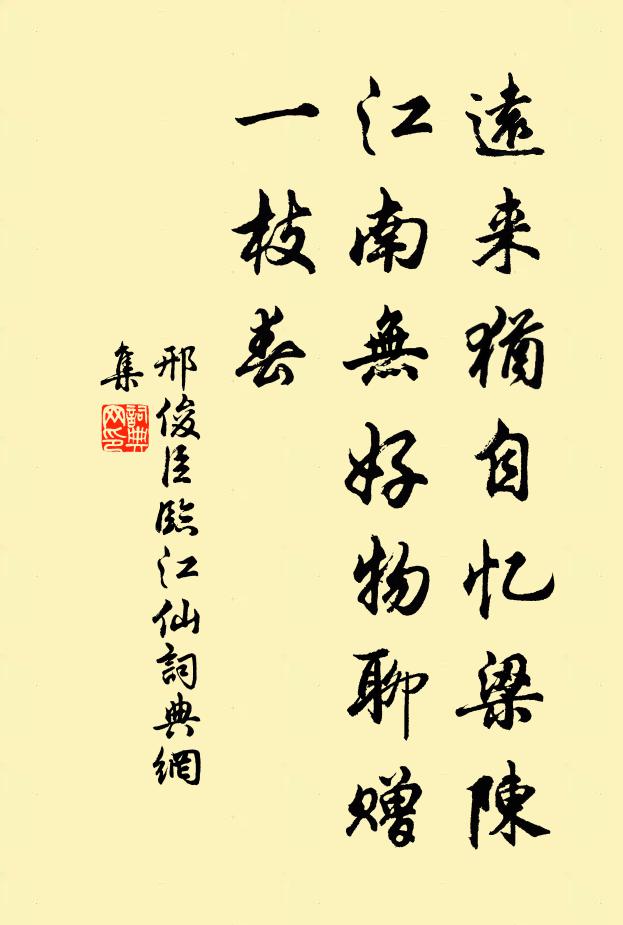 遠来猶自忆梁陳
江南無好物聊赠
一枝春
邢俊臣臨江仙詞典網
集
詞典網印